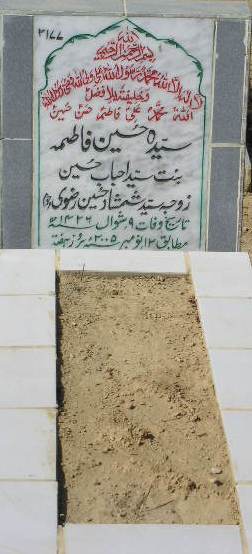 ۳۱۷۷
اللہ
بسم اللہ الرحمن الرحیم
لا الہ الا اللہ محمد رسول اللہ علی ولی اللہ وصی رسول اللہ
وخلیفتہ بلا فصل
اللہ محمد علی فاطمہ حسن حسین
سیدہ حسین فاطمہ
بنت سید احباب حسین
زوجہ سید شمشاد حسین رضوی
تاریخ وفات ۹ شوال ۱۴۲۶ھ
مطابق ۱۲ نومبر ۲۰۰۵ء بروز ہفتہ